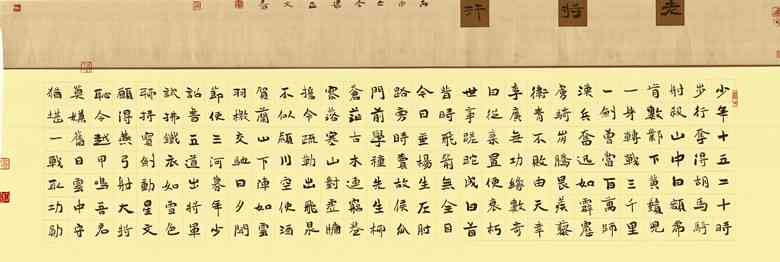 老將行
少年十五二十時
步行奪得胡馬騎
射殺山中白額虎
肯數鄴下黃鬚兒
一身轉戰三千里
一劍曾當百萬師
漢兵奮迅如霹靂
虜騎崩騰畏蒺藜
衛青不敗由天幸
李廣無功緣數奇
自從棄置便衰朽
世事蹉跎成白首
昔時飛箭無全目
今日垂楊生左肘
路旁時賣故侯瓜
門前學種先生柳
蒼茫古木連窮巷
寥落寒山對虛牖
誓令疏勒出飛泉
不似潁川空使酒
賀蘭山下陣如雲
羽檄交馳日夕聞
節使三河募年少
詔書五道出將軍
試拂鐵衣如雪色
聊持寶劍動星文
願得燕弓射大將
恥令越甲鳴吾君
莫嫌舊日雲中守
猶堪一戰取功勛